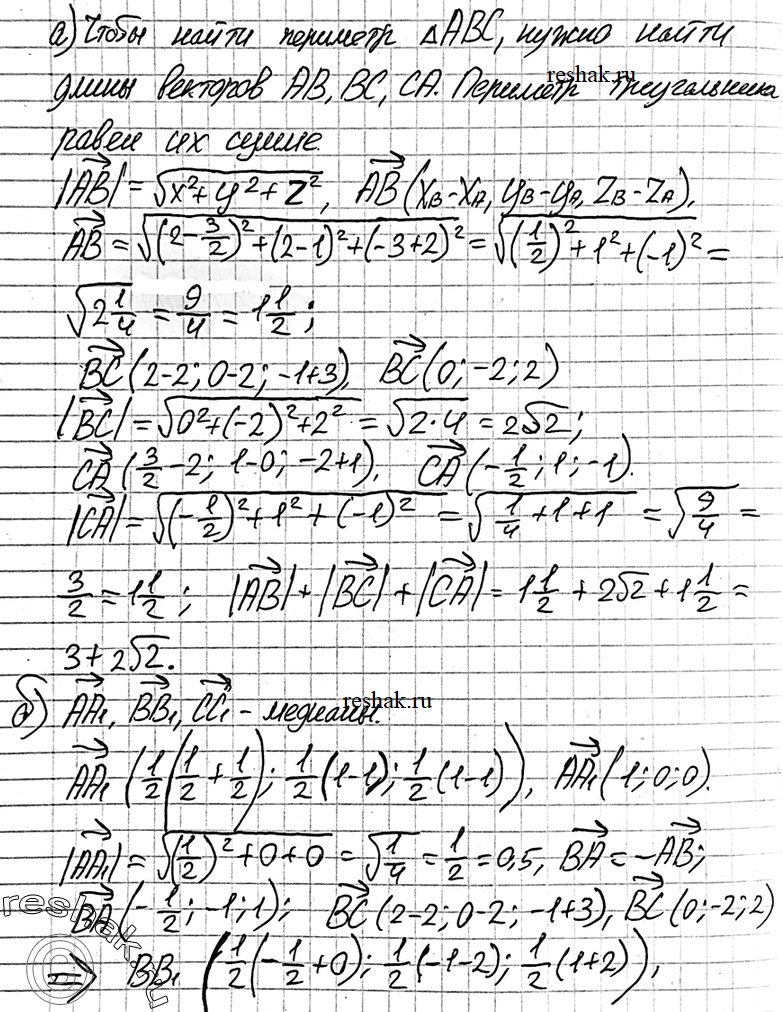 а) Чтобы найти периметр ΔABC, нужно найти
reshak.ru
длины векторов AB, BC, CA. Периметр треугольника
равен их сумме.
|AB| = √(x² + y² + z²), AB (xB - xA, yB - yA, zB - zA).
AB = √((2 - 3/2)² + (2-1)² + (-3+2)²) = √((1/2)² + 1² + (-1)²) =
√(2 1/4) = 9/4 = 1 1/2;
BC (2-2; 0-2; -1+3), BC (0; -2; 2)
|BC| = √(0² + (-2)² + 2²) = √(2·4) = 2√2;
CA (3/2 - 2; 1-0; -2+1), CA (-1/2; 1; -1).
|CA| = √((-1/2)² + 1² + (-1)²) = √(1/4 + 1 + 1) = √(9/4) =
3/2 = 1 1/2; |AB| + |BC| + |CA| = 1 1/2 + 2√2 + 1 1/2 =
3 + 2√2.
reshak.ru
б) AA₁, BB₁, CC₁ - медианы.
AA₁ (1/2(1/2 + 1/2); 1/2(1-1); 1/2(1-1)), AA₁ (1; 0; 0).
|AA₁| = √((1/2)² + 0 + 0) = √(1/4) = 1/2 = 0,5, BA = -AB;
BA (-1/2; -1; 1); BC (2-2; 0-2; -1+3), BC (0; -2; 2)
reshak.ru
⇒ BB₁ (1/2(-1/2 + 0); 1/2(-1-2); 1/2(1+2)),